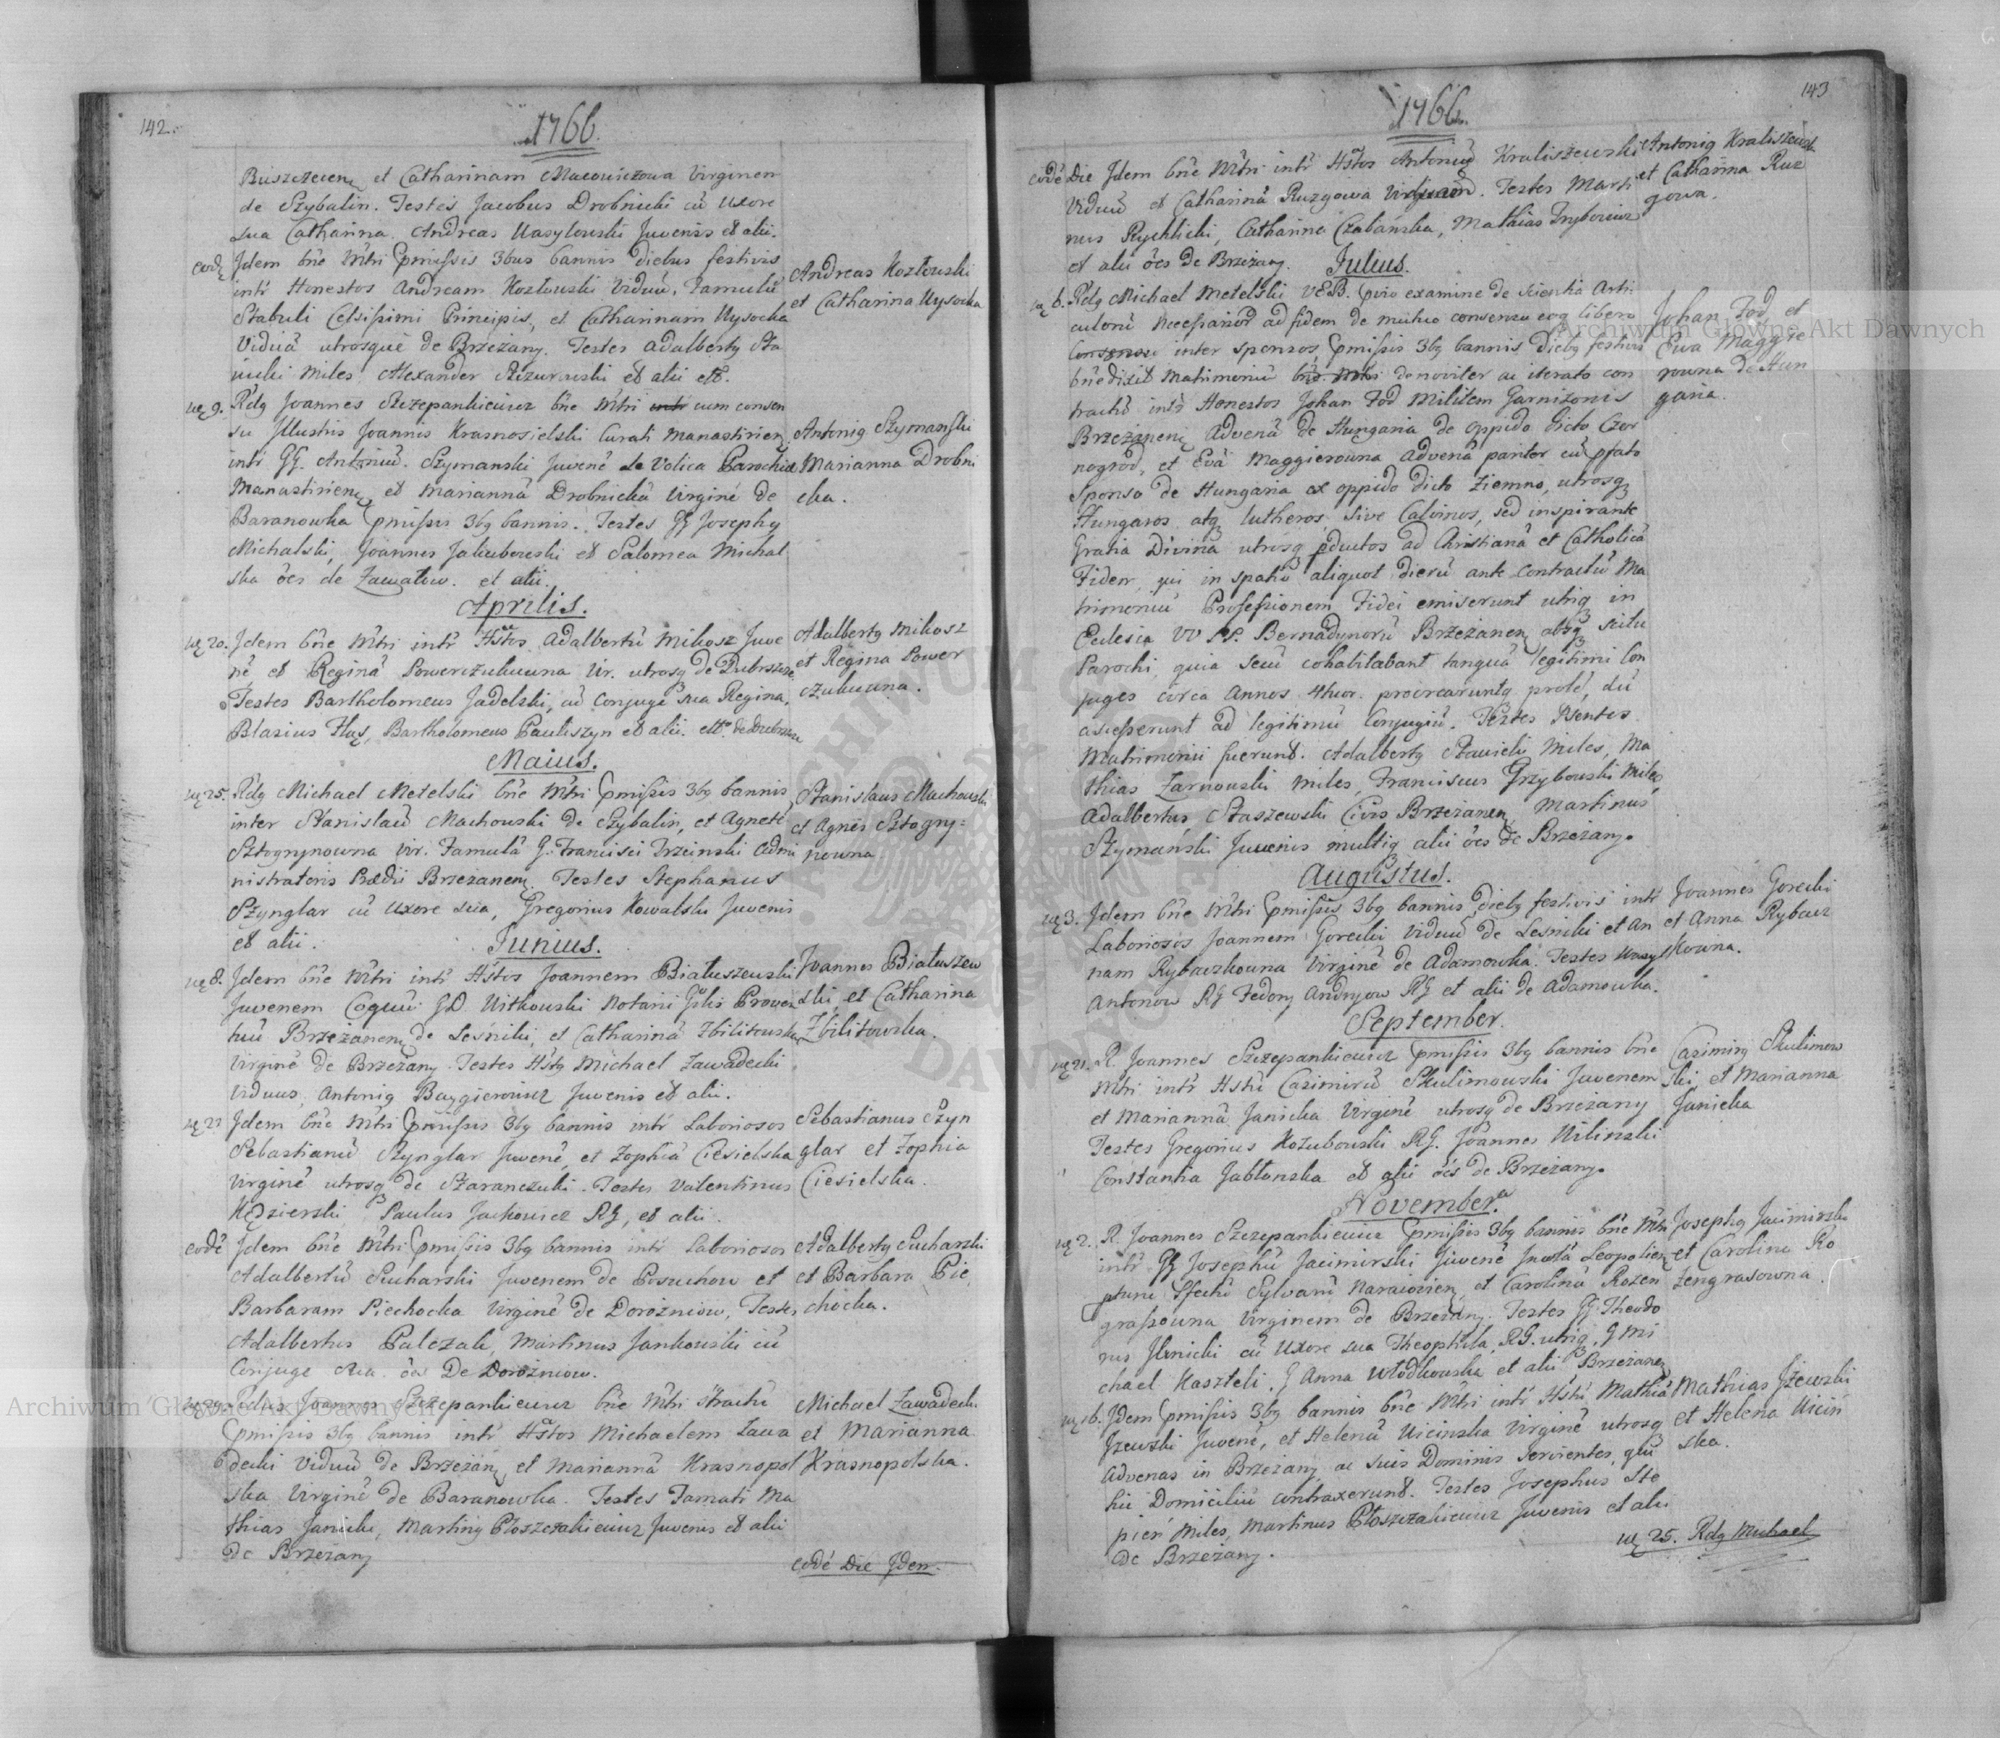 142.
1766.
Buszczecen. et Catharinam Macowiczowa Virginem
de Szybalin. Testes Jacobus Drobnicki cū Uxore
sua Catharina. Andreas Wasylowski Juvenis et alii.
Jdem bn̄e Mtri pmissis 3bus bannis diebus festivis
intr Honestos Andream Kozłowski Viduū, Famulū
Stabuli Celsissimi Principis, et Catharinam Wysocka
Viduā utrosque de Brzezany. Testes Adalberty Sta
wicki Miles Alexander et alii ett.
Andreas Kozłowski
et Catharina Wysocka
9. Rdg Joannes Szczepankiewicz bn̄e Mtri intr cum consen
su Jllustris Joannis Krasnosielski Curati Manastirien.
intr GG. Antoniū Szymanski Juvenē de Volica Parochia
Manastirien. et Mariannā Drobnickā Virginē de
Baranowka pmissis 3bg bannis. Testes Josephg
Michalski, Joannes Jakubowski et Salomea Michal
ska ōes de Zawałow. et alii.
Antonig Szymanski
Marianna Drobni
cka.
Aprilis.
20. Jdem bn̄e Mtri intr Hstos Adalbertū Mikosz Juve
nē et Reginā Powerczukuwna Vir. utrosq de
Testes Bartholomeus Jadelski, cū Conjuge sua Regina,
Blasius Hus, Bartholomeus Pauliszyn et alii. ett.
Adalbertg Mikosz
et Regina Power
czukuwna.
Maius.
25. Rdg Michael Metelski bn̄e Mtri pmissis 3bg bannis
inter Stanislaū Machowski de Szybalin, et Agnetē
Sztogrynowna Vir. Famulā G. Francisci Trzcinski Admi
nistratoris Prædii Brzezanen. Testes Stephanus
Szynglar cū Uxore sua, Gregorius Kowalski Juvenis
et alii.
Stanislaus Machowski
et Agnes Sztogry=
nowna
Junius.
8. Jdem bn̄e Mtri intr Hstos Joannem Białuszewski
Juvenem Coquū GD. Witkowski Notarii Proven
tuū Brzezanen. de Lesniki, et Catharinā Zbilitowska
Virginē de Brzezany. Testes Hstg Michael Zawadecki
Viduus, Antonig Baygierowicz Juvenis et alii.
Joannes Białuszew
ski et Catharina
Zbilitowska.
22 Jdem bn̄e Mtri pmissis 3bg bannis intr Laboriosos
Sebastianū Szynglar Juvenē, et Zophiā Ciesielska
Virginē utrosq de Szaranczuki. Testes Valentinus
Kędzierski, Paulus Jackowicz RG, et alii.
Sebastianus Szyn
glar et Zophia
Ciesielska.
eodē Jdem bn̄e Mtri pmissis 3bg bannis intr Laboriosos
Adalbertū Sucharski Juvenem de Posuchow et
Barbaram Piechocka Virginē de Dorozniow, Testes
Adalbertus Palczak, Martinus Jankowski cū
Conjuge sua ōes De Dorozniow.
Adalbertg Sucharski
et Barbara Pie
chocka.
29. Jdus Joannes Szczepankiewicz bn̄e Mtri
pmissis 3bg bannis intr Hstos Michaelem Zawa
decki Viduū de Brzezany et Mariannā Krasnopol
ska Virginē de Baranowka. Testes Famati Ma
thias Janicki, Marting Płoszczakiewicz Juvenis et alii
de Brzezany
Michael Zawadecki
et Marianna
Krasnopolska.
eodē Die Jdem.
143
1766.
eodē Die Jdem bn̄e Mtri intr Hstos Antoniū Kraliszewski
Viduū et Catharinā Ruzgowa Viduam. Testes Marti
nus Rychlicki, Catharina Czabańska, Mathias Grybowicz
et alii ōes de Brzezany.
Antonig Kraliszewski
et Catharina Ruz
gowa.
Julius.
6. Rdg Michael Metelski VEB. pvio examine de scientia Arti
culorū Necessarior ad fidem de mutuo consensu eog libero
Consensu inter sponsos, pmissis 3bg bannis Diebg festivis
bn̄edixit Matrimoniū bn̄e Mtri denoviter ac iterato con
tractū intr Honestos Johan Fod Militem Garnizonis
Brzezanen. Advenā de Hungaria de oppido dicto Czor
nogrod, et Evā Maggierowna Advenā pariter cū pfato
Sponso de Hungaria ex oppido dicto Ziemno, utrosq
Hungaros atq Lutheros sive Calvinos, sed inspirante
Gratia Divina utrosq pductos ad Christianā et Catholicā
Fidem, qui in spatio aliquot dierū ante contractū Ma
trimoniū Professionem Fidei emiserunt utriq in
Ecclesia VV PP. Bernadynorū Brzezanen. absq scitu
Parochi, quia secū cohabitabant tanquā legitimi Con
juges circa Annos 4tuor. procrearuntq prolē, dū
accesserunt ad legitimū Conjugiū. Testes Psentes
Matrimonii fuerunt. Adalbertg Stawicki Miles, Ma
thias Zarnowski Miles, Franciscus Grzybowski Miles,
Adalbertus Staszewski Civis Brzezanen. Martinus
Szymański Juvenis multig alii ōes de Brzezany.
Johan Fod et
Ewa Maggie
rowna de Hun
garia.
Augustus.
3. Jdem bn̄e Mtri pmissis 3bg bannis diebg festivis intr
Laboriosos Joannem Gorecki Viduū de Lesniki et An
nam Rybaczkowna Virginē de Adamowka. Testes Wasyl
Antonow RG Fedory Andryow RG et alii de Adamowka.
Joannes Gorecki
et Anna Rybacz
kowna.
September.
21. R. Joannes Szczepankiewicz pmissis 3bg bannis bn̄e
Mtri intr Hstū Casimirū Skulimowski Juvenem
et Mariannā Janicka Virginē utrosq de Brzezany
Testes Gregorius Kozubowski RG. Joannes Wilinski
Constantia Jabłonska et alii ōes de Brzezany.
Casimirg Skulimow
ski et Marianna
Janicka
November.
2. R. Joannes Szczepankiewicz pmissis 3bg bannis bn̄e Mtri
intr GG Josephū Jacimirski Juvenē Leopolien.
Sylvarū Naraiovien. et Carolinā Rozen
grassowna Virginem de Brzezany. Testes GG Theodo
rus Jlinicki cū Uxore sua Theophila RG. utriq, G Mi
chael Kaszteli, G Anna Włodkowska et alii Brzezanen.
Josephg Jacimirski
et Carolina Ro
zengrasowna.
16. Jdem pmissis 3bg bannis bn̄e Mtri intr Hstū Mathiā
Jzewski Juvenē, et Helenā Wicinska Virginē utrosq
Advenas in Brzezany ac suis Dominis servientes, qui
hic Domiciliū contraxerunt. Testes Josephus Ste
pien Miles, Martinus Płoszczakiewicz Juvenis et alii
de Brzezany.
Mathias Jżewski
et Helena Wiciń
ska.
25. Rdg Michael
Archiwum Główne Akt Dawnych
Archiwum Główne Akt Dawnych